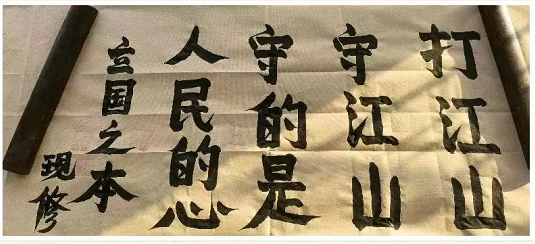 打江山
守江山
守的是
人民的心
立国之本
现修